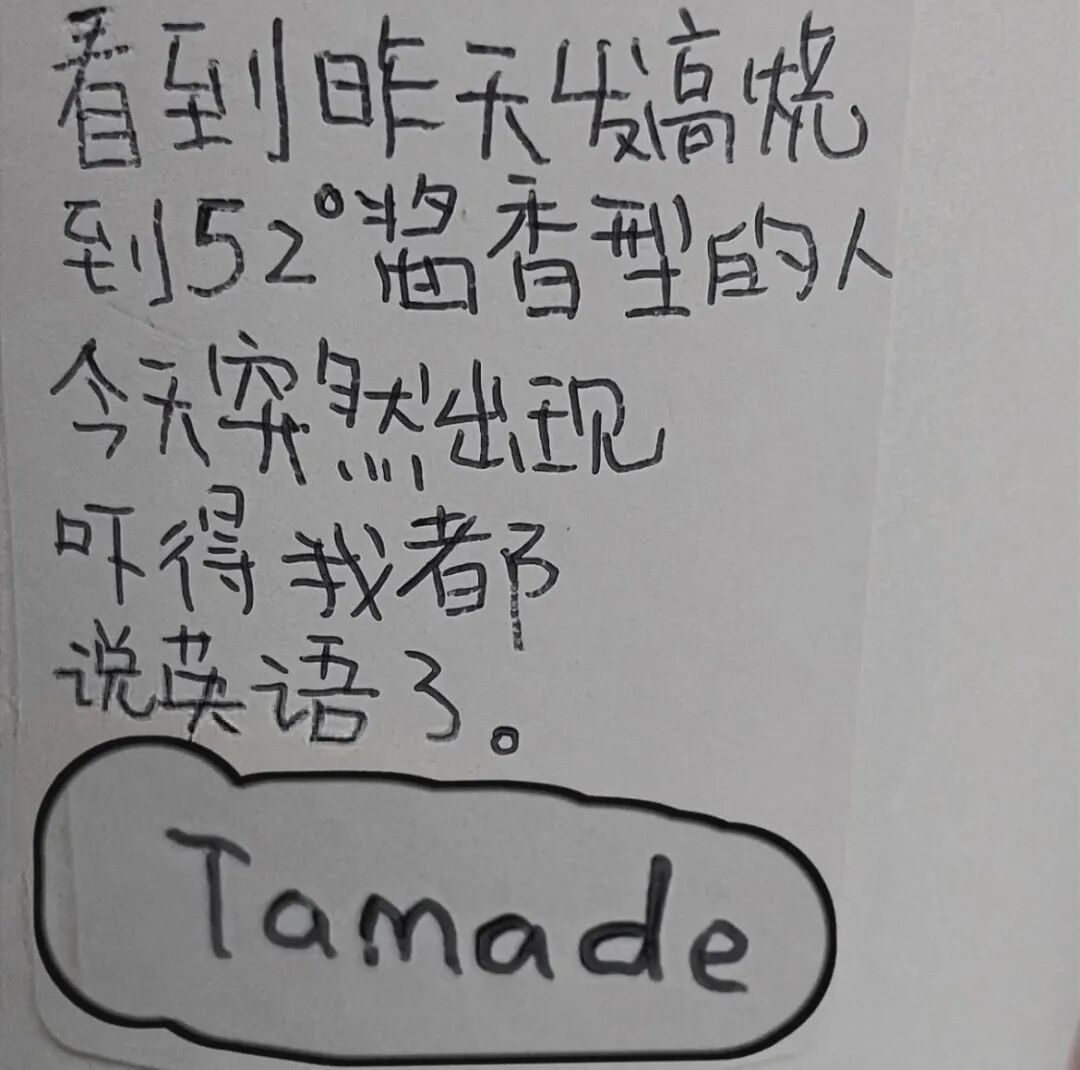 看到昨天发高烧
到52°酱香型的人
今天突然出现
吓得我都
说英语了。
Tamade